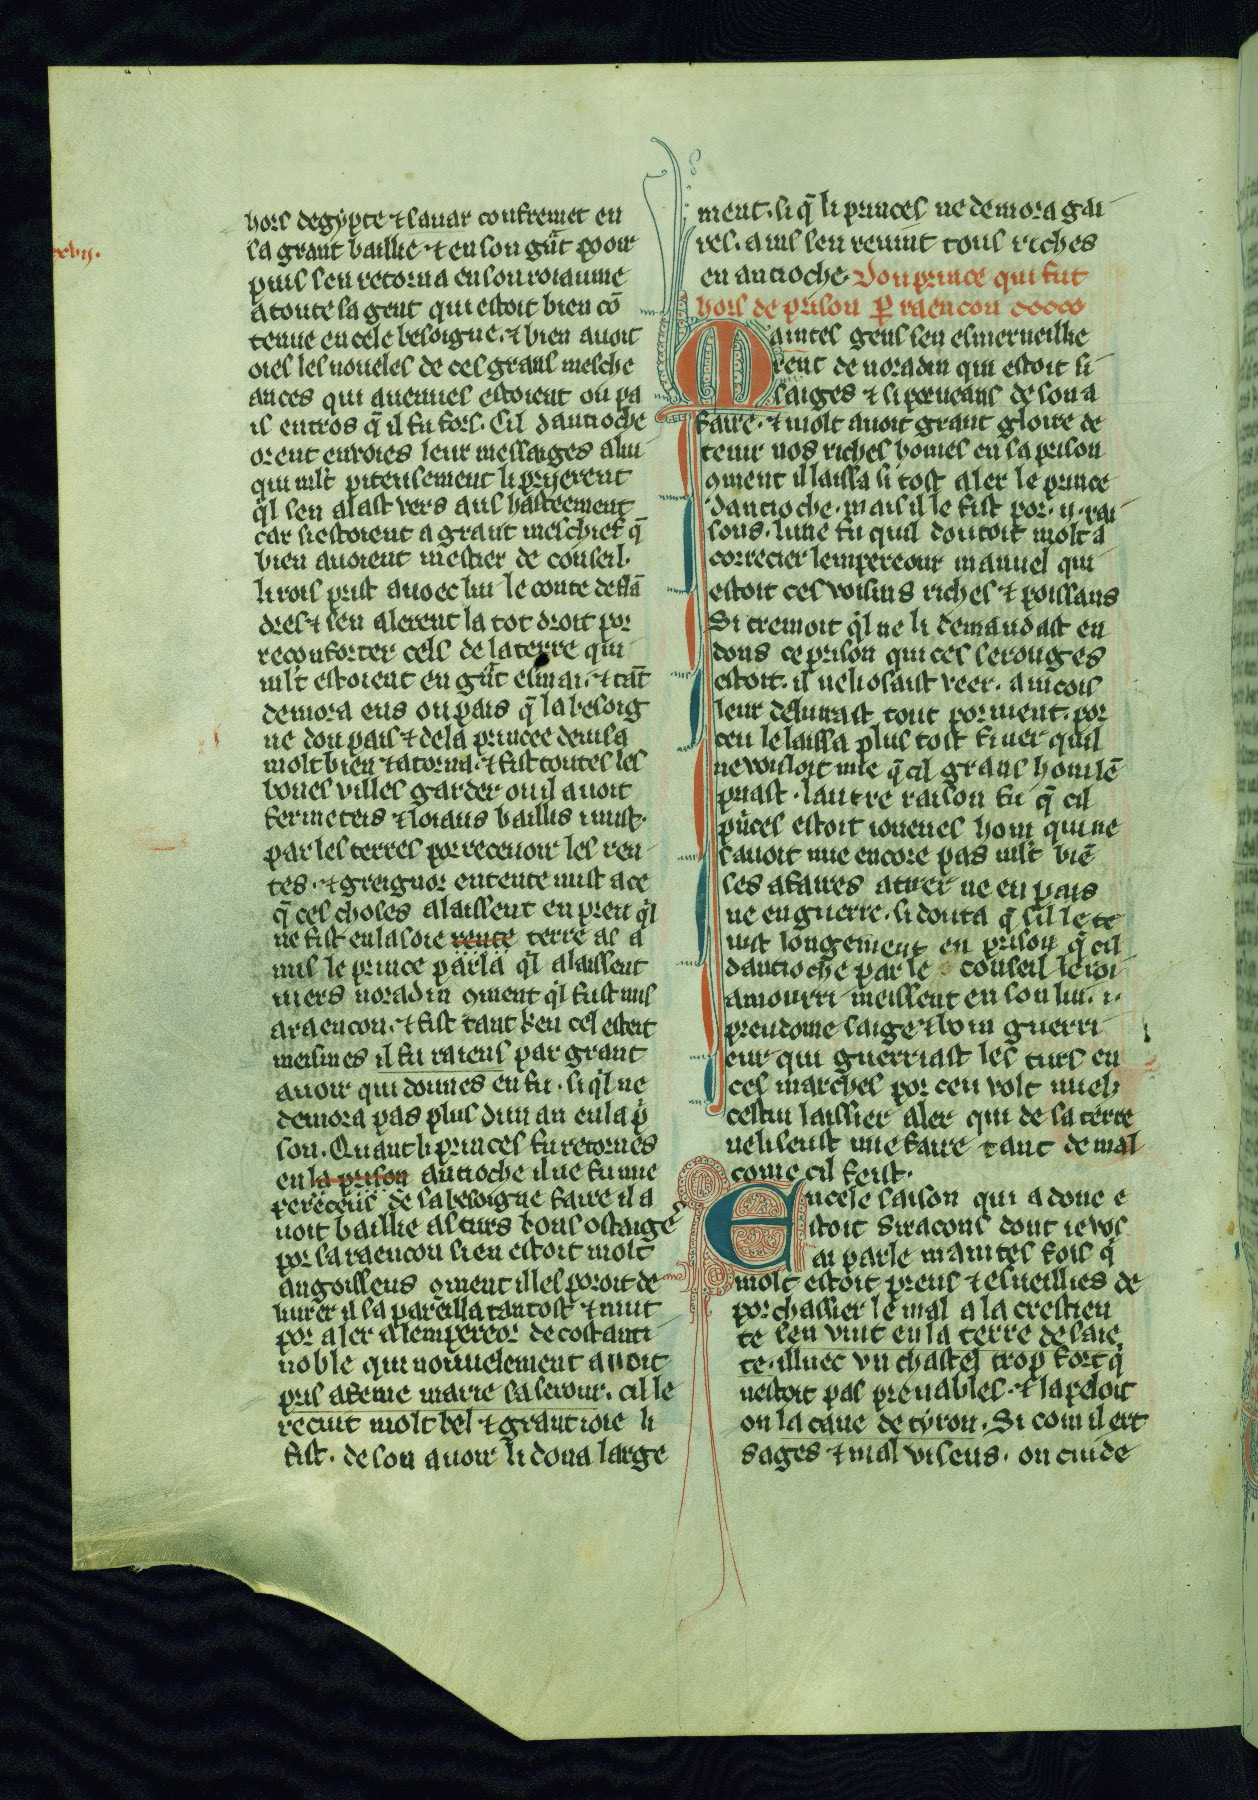 hors degypte ⁊ sauar confremet en
sa grant baillie ⁊ en son g̃nt pooir
puis sen retorna en son roiaume
a toute sa gent qui estoit bien cõ
tenue en cele besoigne. ⁊ bien auoit
oies les noueles de ces grans mesche
ances qui auenues estoient ou pa
is entros q̃ il fu fors. Cil dantioche
orent enuoies leur messaiges a lui
qui mlt̃ piteusement li prierent
ql sen alast vers aus hasteement
car si estoient a grant meschief q̃
bien auoient mestier de conseil.
li rois prist auoec lui le conte de flã
dres ⁊ sen alerent la tot droit por
reconforter cels de la terre qui
mlt̃ estoient en g̃nt esmai. ⁊ tãt
demora ens ou pais q̃ la besoig
ne dou pais ⁊ de la princee deuisa
molt bien ⁊ atorna. ⁊ fist toutes les
bones villes garder ou il auoit
fermeteis ⁊ loiaus baillis i mist.
par les terres por receuoir les ren
tes. ⁊ greignor entente mist a ce
q̃ ces choses alaissent en preu ql
ne fist en la soie rente terre as a
mis le prince parla ql alaissent
uiers noradin 9ment ql fust mis
a raencon. ⁊ fist tant ken cel esteit
meismes il fu raiens par grant
auoir qui dounes en fu. si ql ne
demora pas plus dun an en la p̃
son. Quant li princes fu retornes
en la prison antioche il ne fu mie
pereceus de sa besoigne faire il a
uoit baillie as turs bons ostaiges
por sa raencon si en estoit molt
angoisseus 9ment il les poroit de
liurer il sa pareilla tantost ⁊ mut
por aler a lempereor de costanti
noble qui nouuelement auoit
pris a feme marie sa serour. cil le
reciut molt bel ⁊ grant ioie li
fist. de son auoir li dona large
ment. si q̃ li princes ne demora gai
res. ains sen reuint tous riches
en antioche. Dou prince qui fut
hors de prison ꝑ raencon
Maintes gens sen esmerueillie
rent de noradin qui estoit si
saiges ⁊ si porueans de son a
faire. ⁊ molt auoit grant gloire de
tenir nos riches homes en sa prison
9ment il laissa si tost aler le prince
dantioche. mais il le fist por .ii. rai
sons. lune fu quil doutoit molt a
correcier lempereour manuel qui
estoit ces voisins riches ⁊ poissans
Si cremoit ql ne li demandast en
dons ce prison qui ces serouges
estoit. il ne li osaist veer. aincois
leur deliurast tout por nient. por
ceu le laissa plus tost finer quil
ne vousloit mie q̃ cil grans hom lẽ
priast. lautre raison fu q̃ cil
p̃nces estoit iouenes hom qui ne
sauoit mie encore pas mlt̃ biẽ
ses afaires atirer ne en pais
ne en guerre. si douta q̃ sil le te
nist longement en prison q̃ cil
dantioche par le conseil le roi
amourri meissent en son liu. i.
preudome saige ⁊ boin guerri
eur qui guerriast les turs en
ces marches por ceu volt miels
cestui laissier aler qui de sa terre
ne li seust mie faire tant de mal
come cil feist.
En cele saison qui adone e
stoit Siracons dont ie vos
ai parle maintes fois q̃
molt estoit preus ⁊ esueillies de
por chassier le mal a la crestien
te sen vint en la terre de saie
te. illuec vn chastel trop fort q̃
nestoit pas prenables. ⁊ lapeloit
on la caue de tyron. Si com il ert
sages ⁊ mal viseus. on cuide